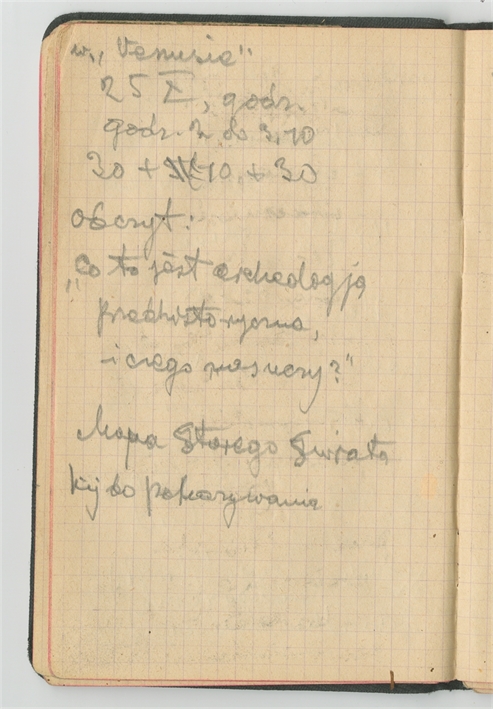 w „Venusie"
25 X, godz.
godz. 2 do 3,10
30 + 10 + 30
Odczyt:
„Co to jest archeologja
prachistoryczna,
i czego nas uczy?"
Mapa Starego Świata
kij do pokazywania